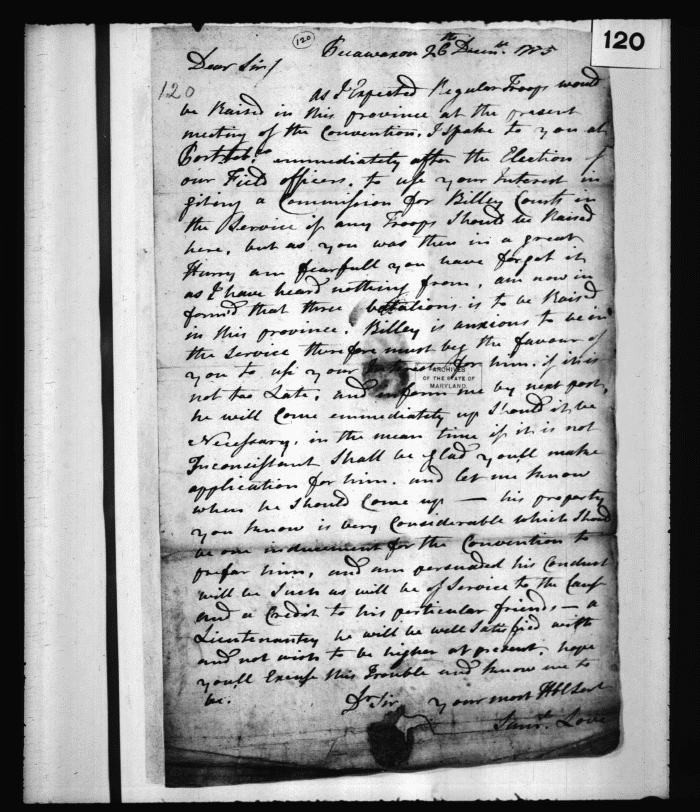 120
120
Pecawaxon 26th Decemr. 1775
Dear Sir/
120
as I Expected Regular Troops would
be Raised in this province at the present
meeting of the Convention, I spake to you at
Port Tobo. emmediately after the Election of
our Field officers, to use your Interest in
giting a Commission for Billey Courts in
the Service if any Troops Should be Raised
here, but as you was then in a great
Hurry am fearfull you have forgot it,
as I have heard nothing from, am now in
form'd that three battations is to be Rais'd
in this province. Billey is anxious to be in
the Service therefore must beg the favour of
you to use your Interest for him, if it is
not too Late, and inform me by next post,
he will Come emmediately up Should it be
Necessary, in the mean time if it is not
Inconsistant Shall be glad you'll make
application for him, and let me know
when he Should Come up — his property
you know is very Considerable which Should
be one inducement for the Convention to
prefar him, and am persuaded his Conduct
will be Such as will be of Service to the Cause
and a Credit to his particular friends — a
Lieutenantcy he will be well Satisfied with
and not wish to be higher at present, hope
you'll Excuse this Trouble and know me to
be.
Dr Sir your most Hble Sert
Saml. Love
ARCHIVES
OF THE STATE OF
MARYLAND.